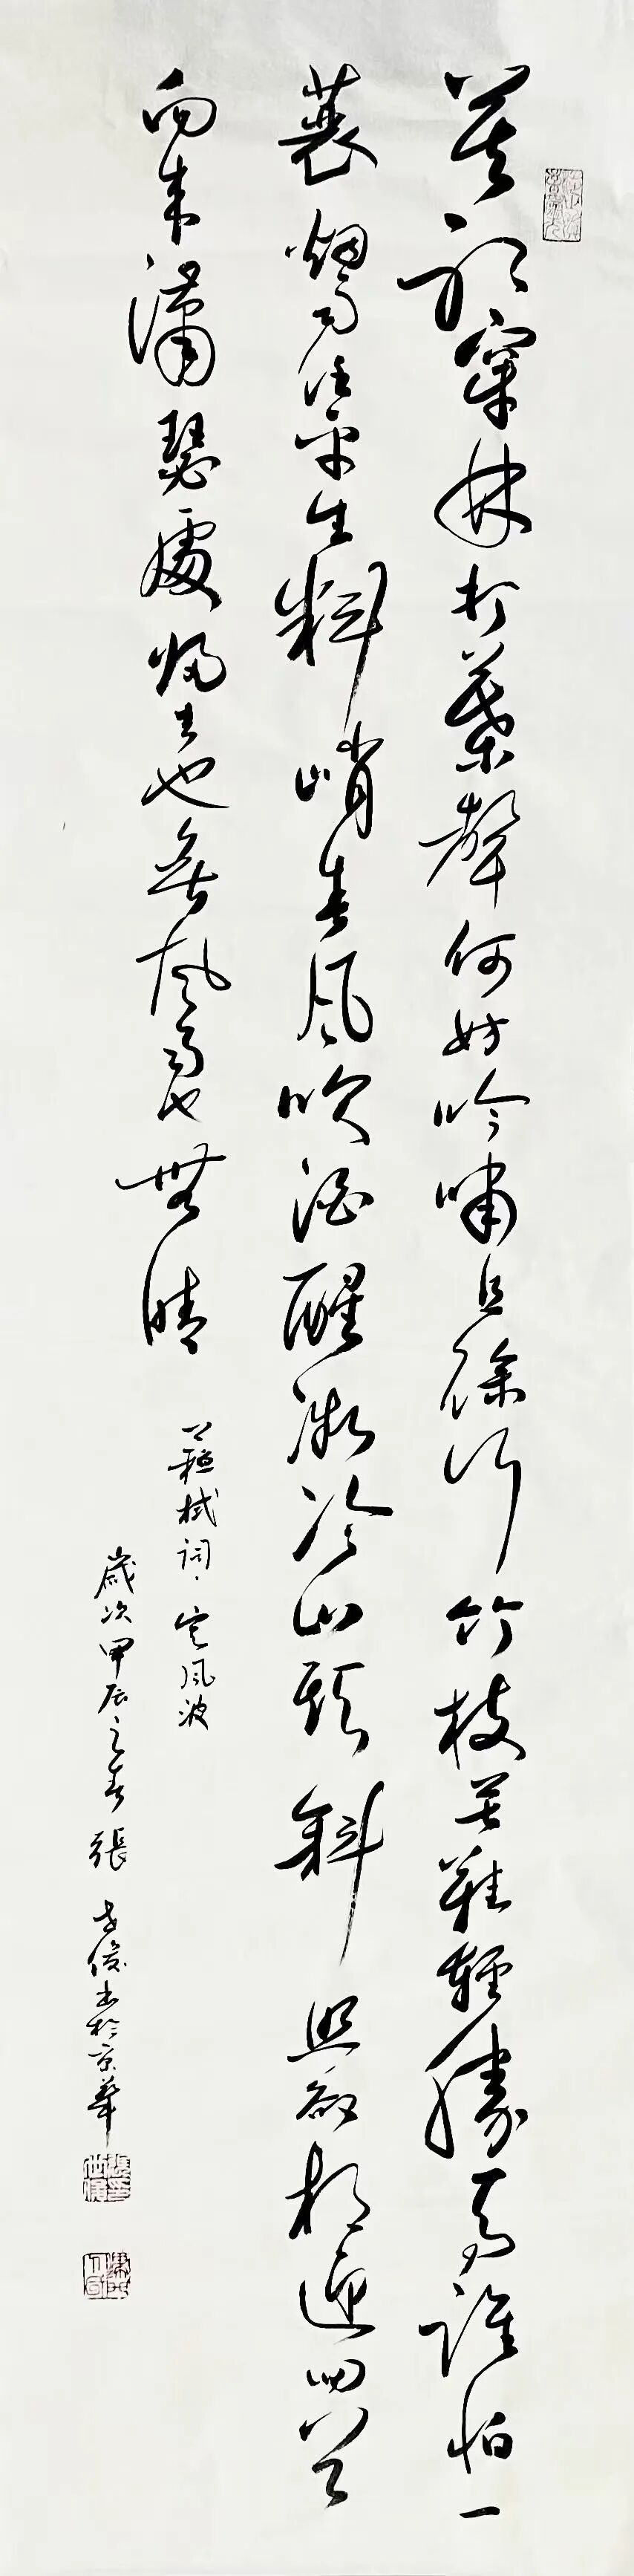 莫聽穿林打葉聲何妨吟嘯且徐行竹枝芒鞋輕勝馬誰怕一
蓑煙雨任平生料峭春風吹酒醒微冷山頭斜照卻相迎回首
向來瀟瑟處歸去也無風雨也無晴
蘇軾詞、定風波
歲次甲辰之春張世俊書於京華